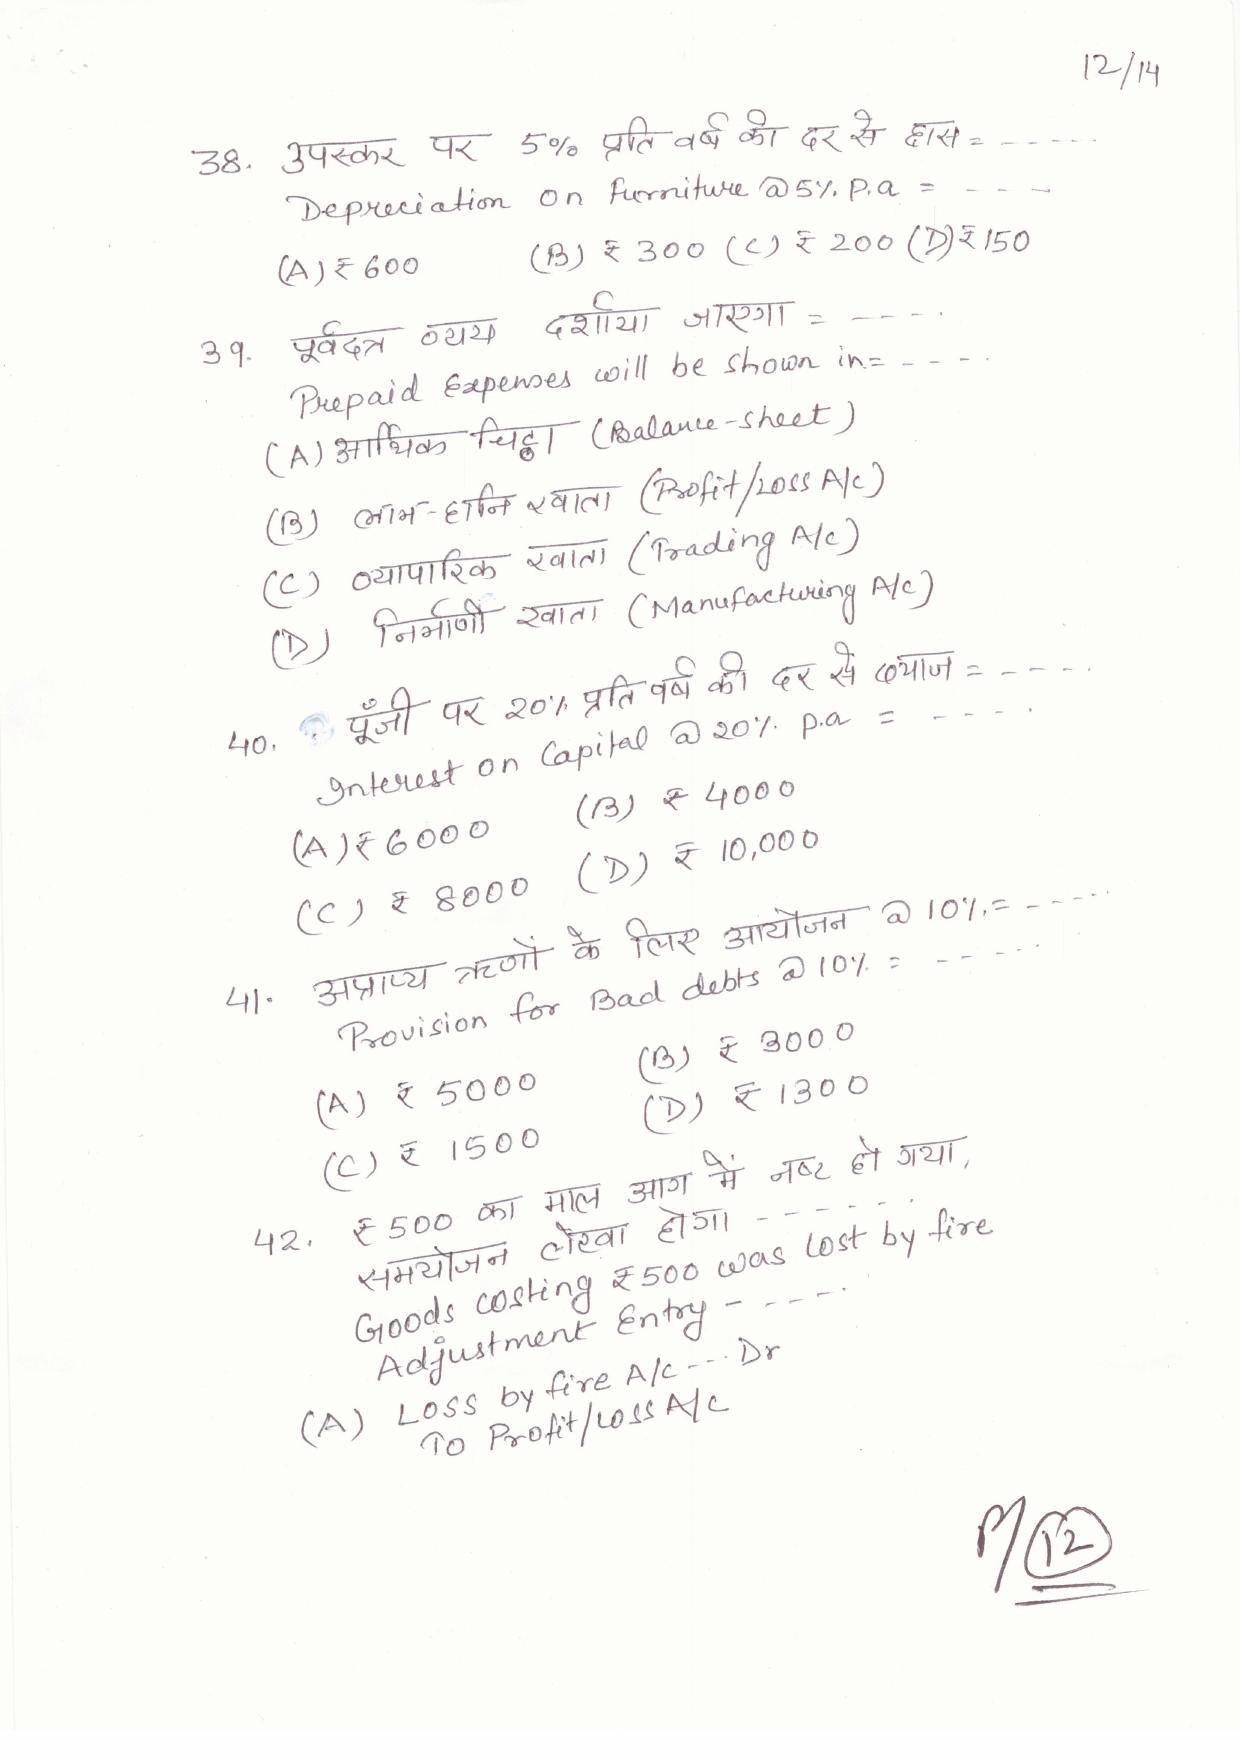 12/14
38. उपस्कर पर 5% प्रति वर्ष की दर से ह्रास = -----
Depreciation on furniture @ 5%. P.a = ----
(A) ₹ 600 (B) ₹ 300 (C) ₹ 200 (D) ₹ 150
39. पूर्वदत्त व्यय दर्शाया जाएगा = ----
Prepaid Expenses will be shown in = ----
(A) आर्थिक चिट्ठा (Balance-sheet)
(B) लाभ-हानि खाता (Profit/Loss A/c)
(C) व्यापारिक खाता (Trading A/c)
(D) निर्माणी खाता (Manufacturing A/c)
40. पूँजी पर 20% प्रति वर्ष की दर से ब्याज = ----
Interest on Capital @ 20%. p.a = ----
(A) ₹ 6000 (B) ₹ 4000
(C) ₹ 8000 (D) ₹ 10,000
41. अप्राप्य ऋणों के लिए आयोजन @ 10%. = -----
Provision for Bad debts @ 10%. = -----
(A) ₹ 5000 (B) ₹ 3000
(C) ₹ 1500 (D) ₹ 1300
42. ₹ 500 का माल आग में नष्ट हो गया,
समयोजन लेखा होगा ------
Goods costing ₹ 500 was lost by fire
Adjustment Entry -----
(A) Loss by fire A/c --- Dr
To Profit/Loss A/c
P/12